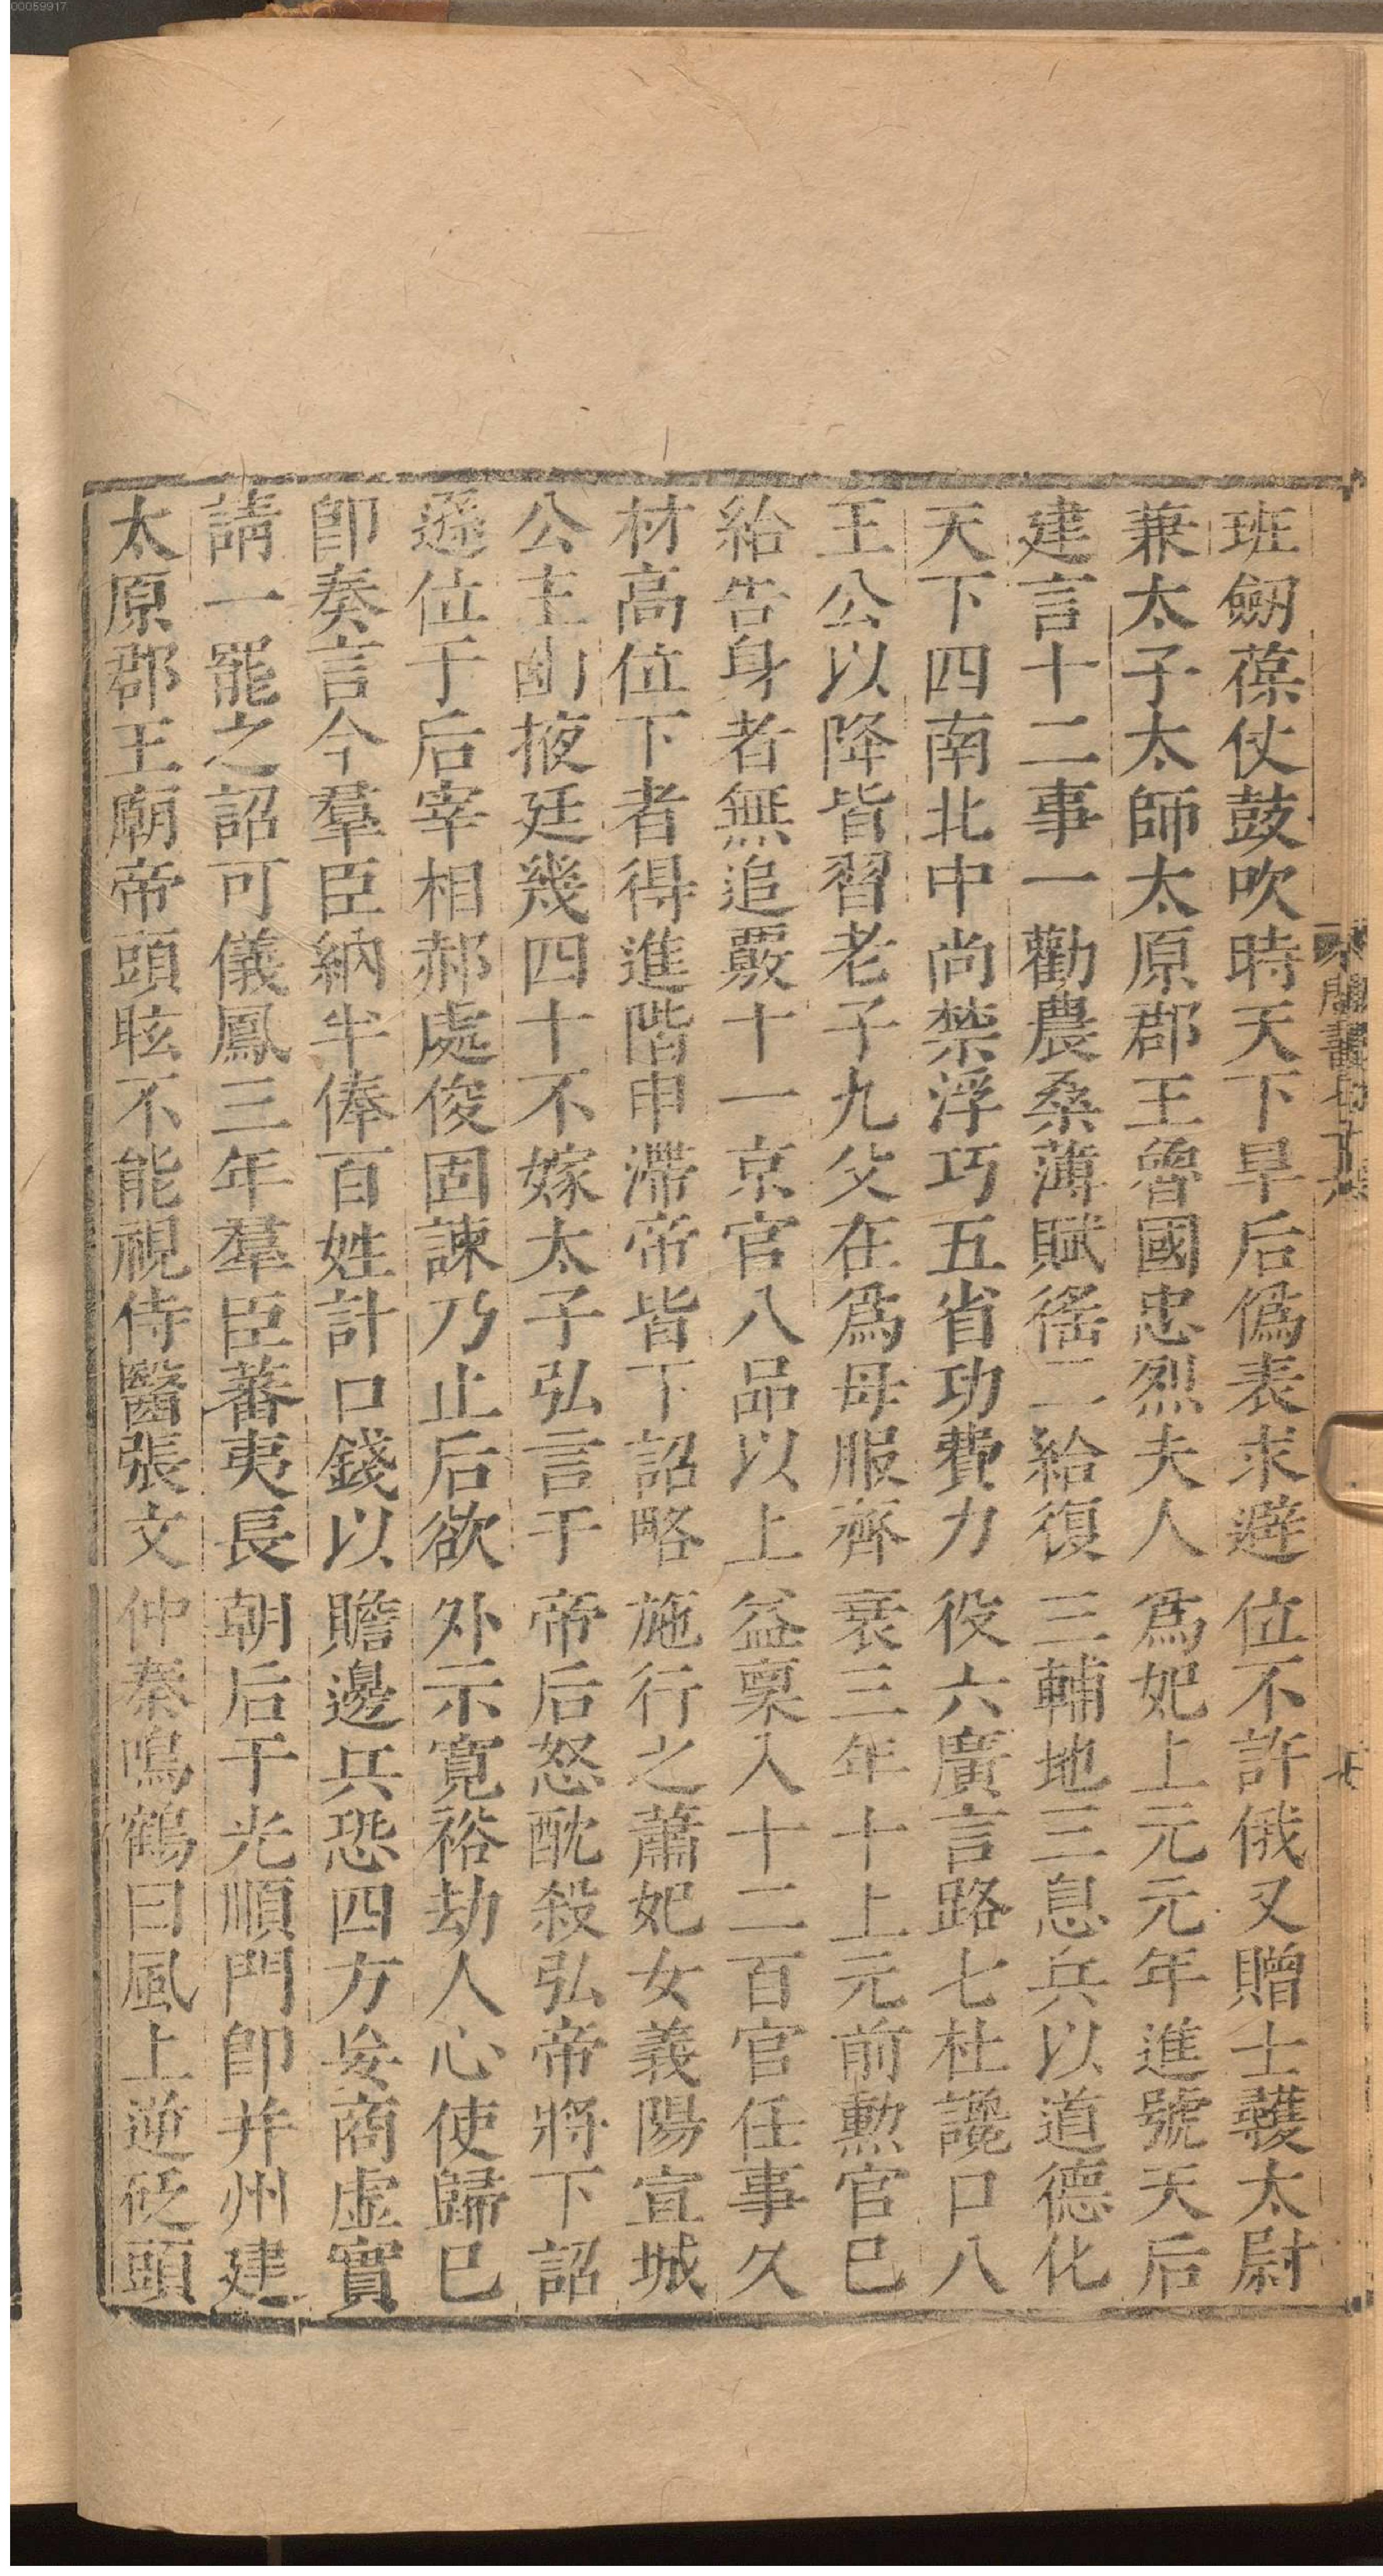 班劒葆仗鼓吹時天下旱后僞表求避位不許俄又贈士彠太尉
兼太子太師太原郡王魯國忠烈夫人爲妃上元元年進號天后
建言十二事一勸農桑薄賦徭二給復三輔地三息兵以道德化
天下四南北中尚禁浮巧五省功費力役六廣言路七杜讒口八
王公以降皆習老子九父在爲母服齊衰三年十上元前勲官已
給告身者無追覈十一京官八品以上益稟入十二百官任事久
材高位下者得進階申滯帝皆下詔略施行之蕭妃女義陽宣城
公主幽掖廷幾四十不嫁太子弘言于帝后怒酖殺弘帝將下詔
遜位于后宰相郝處俊固諫乃止后欲外示寬裕劫人心使歸已
卽奏言今羣臣納半俸百姓計口錢以贍邊兵恐四方妄商虛實
請一罷之詔可儀鳳三年羣臣蕃夷長朝后于光順門卽并州建
太原郡王廟帝頭眩不能視侍醫張文仲秦鳴鶴曰風上逆砭頭
00059917